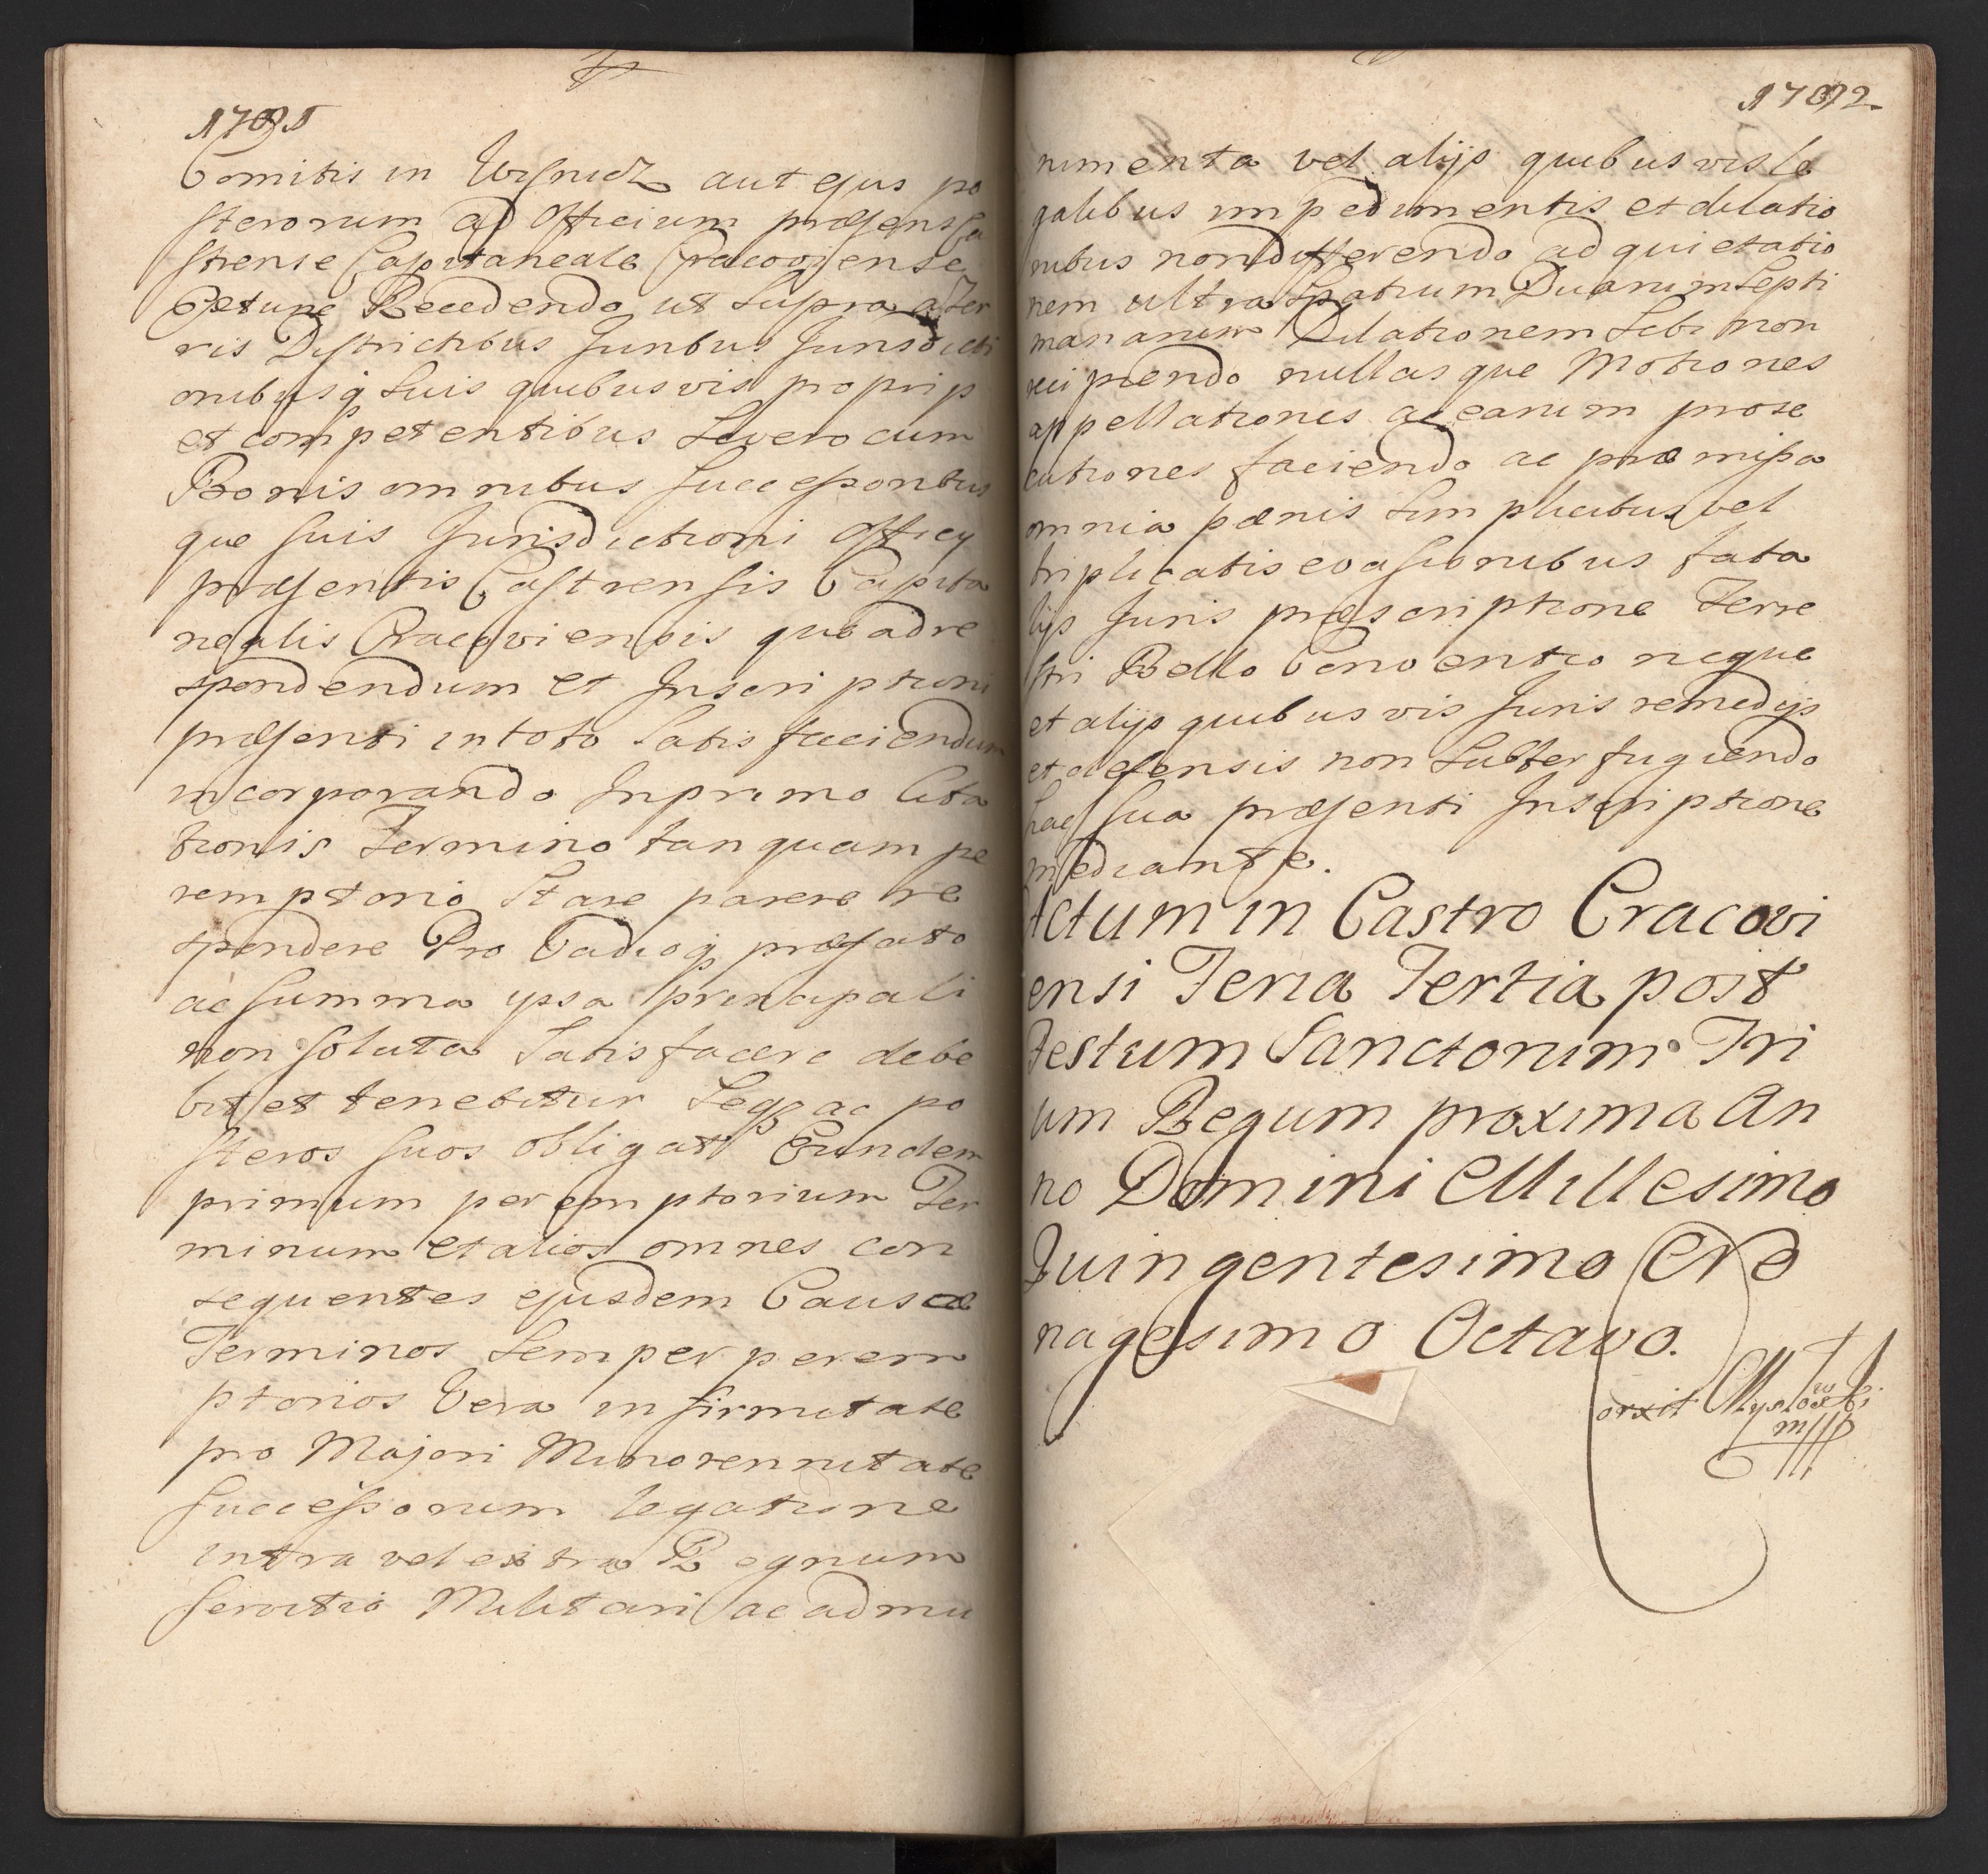 1701
Comitis in Wisnicz aut ejus po
sterorum ad Officium præsens Ca
strense Capitaneale Cracoviense
Extunc Recedendo ut Supra a Ter
ris Districtibus Juribus Jurisdicti
onibusq Suis quibusvis proprijs
et competentibus Se vero cum
Bonis omnibus Successoribus
que suis Jurisdictioni Officij
præsentis Castrensis Capita
nealis Cracoviensis quo ad re
spondendum et Inscriptioni
præsenti in toto Satis faciendum
incorporando In primo Cita
tionis Termino tanquam pe
remptorio Stare parere re
spondere Pro Vadioq præfato
ac summa ipsa principali
non soluta Satisfacere debe
bit et tenebitur Seqz ac po
steros suos obligat Eundem
primum peremptorium Ter
minum et alios omnes con
sequentes ejusdem Causæ
Terminos Semper perem
ptorios Vera infirmitate
pro Majori Minorennitate
Successorum legatione
intra vel extra Regnum
servitio Militari ac ad mu
1702
nimenta vel alijs quibusvis le
galibus impedimentis et dilatio
nibus non differendo ad quietatio
nem ultra Spatium Duarum Septi
manarum Dilationem Sibi non
recipiendo nullasque Motiones
appellationes ac earum prose
cutiones faciendo ac præmissa
omnia pænis Simplicibus vel
triplicatis evasionibus fata
lijs Juris præscriptione Terre
stri Bello Convento neque
et alijs quibusvis Juris remedijs
et defensis non Subterfugiendo
hac sua præsenti Inscriptione
mediante.
Actum in Castro Cracovi
ensi Feria Tertia post
Festum Sanctorum Tri
um Regum proxima An
no Domini Millesimo
Quingentesimo No
nagesimo Octavo.